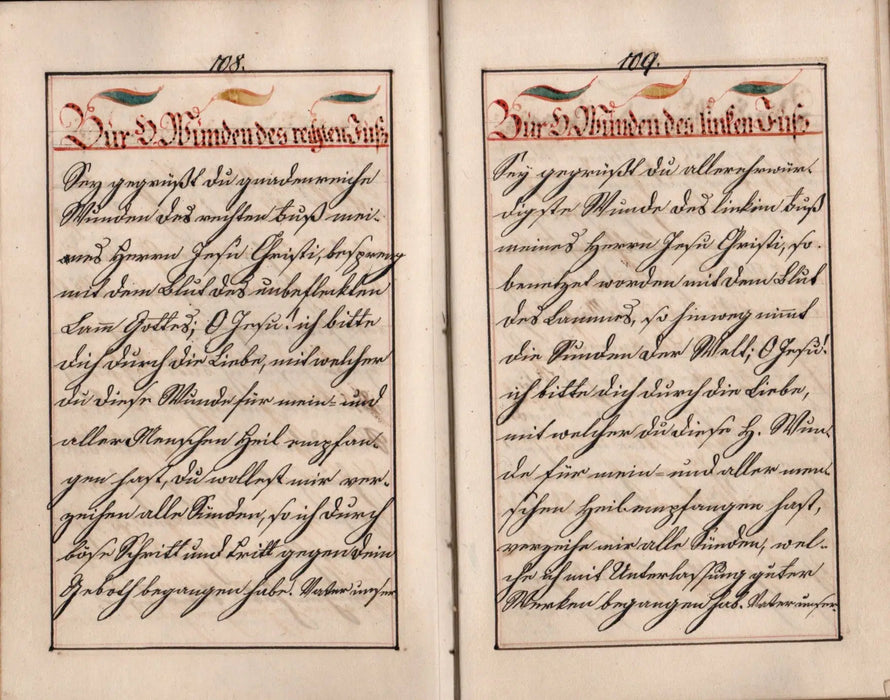 108.
Zur H. Wunden des rechten Fuß
Sey gegrüßt du gnadenreiche
Wunden des rechten Fuß mei-
nes Herrn Jesu Christi, bespreng
mit dem Blut des unbefleckten
Lam Gottes; O Jesu! ich bitte
dich durch die Liebe, mit welcher
du diese Wunde für mein- und
aller Menschen Heil empfan-
gen hast, du wollest mir ver-
zeihen alle Sünden, so ich durch
böse Schritt und Tritt gegen dein
Geboth begangen habe. Vater unser
109.
Zur H. Wunden des linken Fuß
Sey gegrüßt du allerehrwür-
digste Wunde des linken Fuß
meines Herrn Jesu Christi, so
benetzet worden mit dem Blut
des Lammes, so hinweg nimt
die Sünden der Welt; O Jesu!
ich bitte dich durch die Liebe,
mit welcher du diese H. Wun-
de für mein- und aller men-
schen Heil empfangen hast,
verzeihe mir alle Sünden, wel-
che ich mit Unterlassung guter
Werken begangen hab. Vater unser